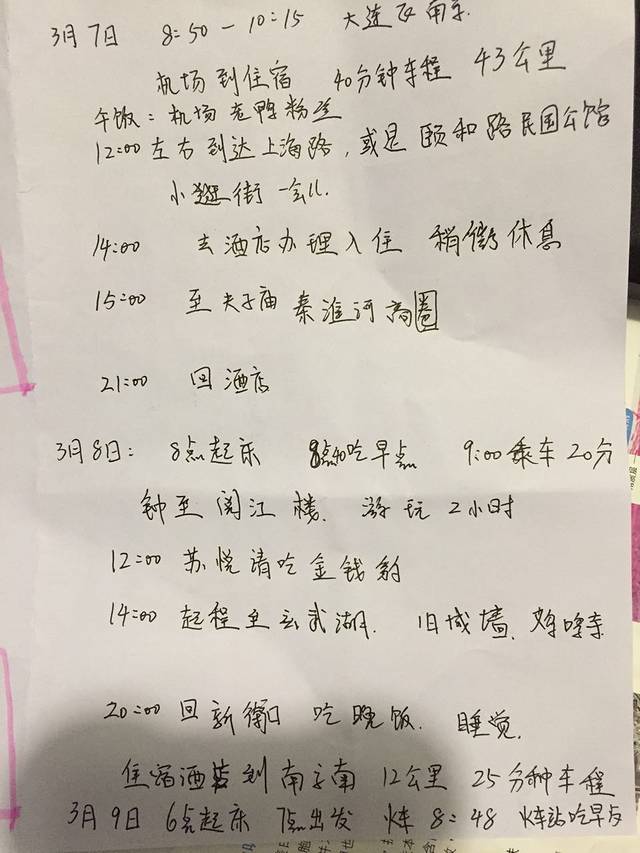 3月7日 8:50-10:15 大连飞南京.
机场到住宿 40分钟车程 43公里
午饭:机场 老鸭粉丝
12:00左右到达上海路,或是 颐和路民国公馆
小逛街一会儿.
14:00 去酒店办理入住 稍微休息
15:00 至夫子庙 秦淮河商圈
21:00 回酒店
3月8日: 8点起床 8点40吃早点 9:00乘车20分
钟至阅江楼. 游玩2小时
12:00 苏悦请吃金钱豹
14:00 起程至玄武湖. 旧城墙. 鸡鸣寺
20:00 回新街口 吃晚饭. 睡觉.
住宿酒店到南京南 12公里 25分种车程
3月9日 6点起床 7点出发 火车8:48 火车站吃早点